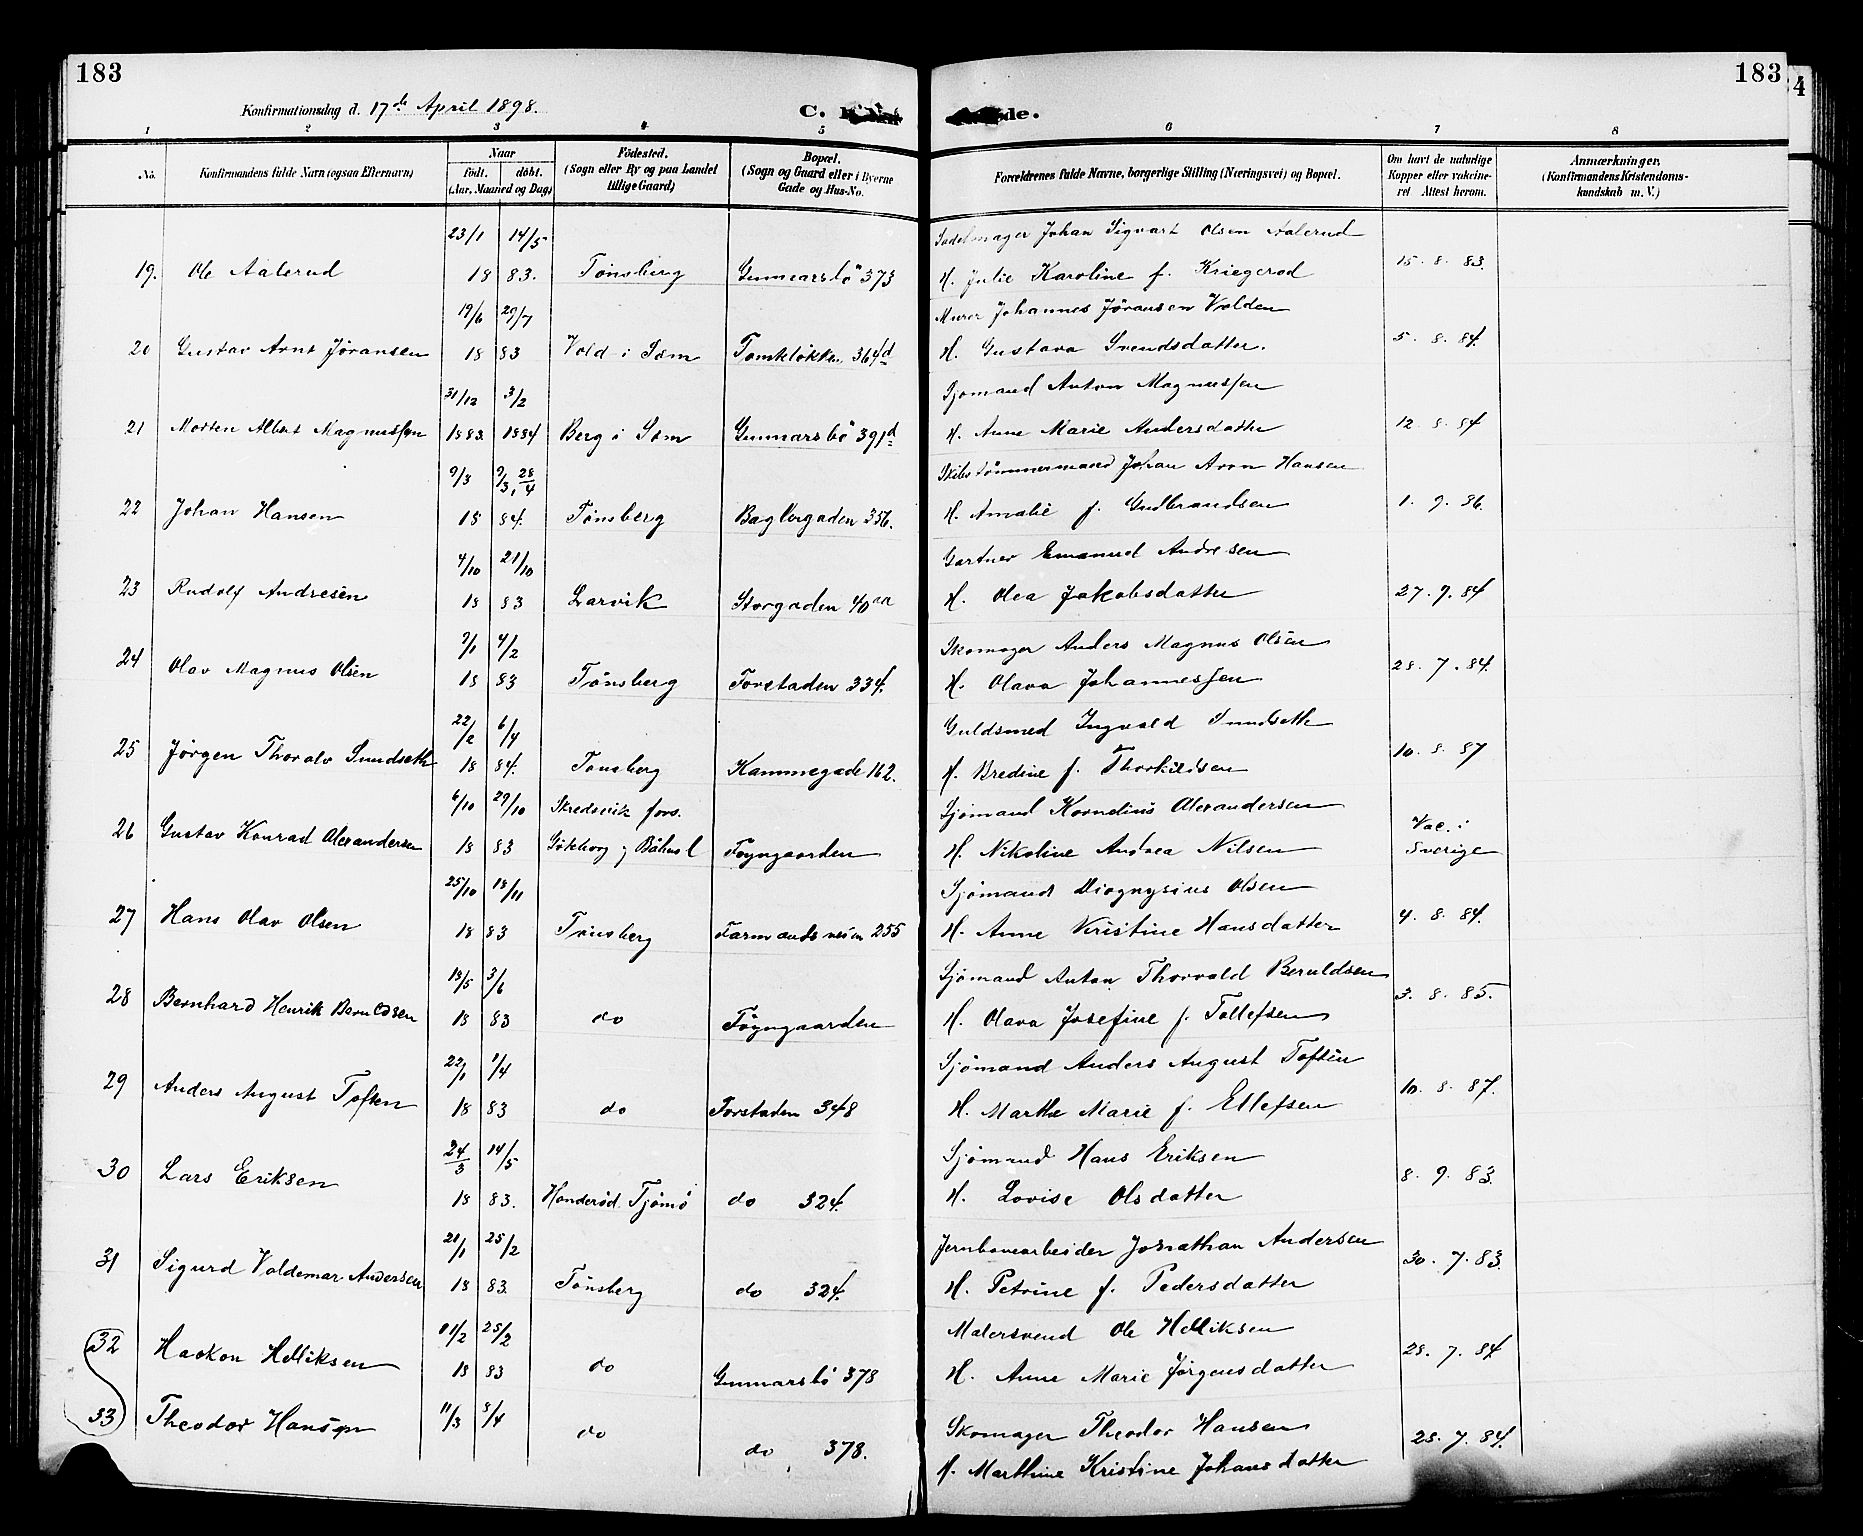 183 183
4
Konfirmationsdag d. 17de April 1898. C. de.
1 2 3 4 5 6 7 8
No. Konfirmandens fulde Navn (ogsaa Efternavn) Naar født. døbt. (Aar, Maaned og Dag) Fødested. (Sogn eller By og paa Landet tillige Gaard) Bopæl. (Sogn og Gaard eller i Byerne Gade og Hus-No. Forældrenes fulde Navne, borgerlige Stilling (Næringsvei) og Bopæl. Om havt de naturlige Kopper eller vaccineret Attest herom. Anmærkninger, (Konfirmandens Kristendomskundskab m. V.)
23/1 14/5 Sadelmager Johan Sigvart Olsen Aalerud
19. Ole Aalerud 18 83. Tønsberg Gunnarsbö 373 H. Julie Karoline f. Kriegerød 15. 8. 83.
19/6 29/7 Murer Johannes Jöransen Volden
20 Gustav Arnt Jöransen 18 83 Vold i Sæm Tomteløkken 364d H. Gustava Svendsdatter. 5. 8. 84.
31/12 3/2 Sjömand Anton Magnussen
21 Morten Albert Magnussen 1883. 1884 Berg i Sæm Gunnarsbö 391d H. Anne Marie Andersdatter 12. 8. 84
9/3 9/3, 28/4 Skibstömmermand Johan Aron Hansen
22 Johan Hansen 18 84. Tønsberg Baglergaden 356. H. Amalie f. Gudbrandsen 1. 9. 86.
4/10 21/10 Gartner Emanuel Andresen
23 Rudolf Andresen 18 83 Larvik Storgaden 40aa H. Olea Jakobsdatter 27. 9. 84
7/1 4/2 Skomager Anders Magnus Olsen
24 Olav Magnus Olsen 18 83 Tønsberg Forstaden 334. H. Olava Johannessen 28. 7. 84.
22/2 6/4 Guldsmed Ingvald Sundseth
25 Jørgen Thoralv Sundseth 18 84. Tønsberg Kammegade 162. H. Bredine f. Thorkildsen 10. 8. 87
6/10 29/10 Skredsvik fors. Sjömand Kornelius Alexandersen
26 Gustav Konrad Alexandersen 18 83 Göteborg og Båhusl Foyngaarden H. Nikoline Andrea Nilsen Vac. i Sverige
25/10 18/11 Sjömand Diognysius Olsen
27 Hans Olav Olsen 18 83 Tönsberg Farmandsveien 255 H. Anne Kristine Hansdatter 4. 8. 84.
13/5 3/6 Sjömand Anton Thorvald Beruldsen
28 Bernhard Henrik Beruldsen 18 83 do Föyngaarden H. Olava Josefine f. Tollefsen 3. 8. 85.
22/1 1/4 Sjömand Anders August Toften
29 Anders August Toften 18 83 do Forstaden 348 H. Marthe Marie f. Ellefsen 10. 8. 87.
24/3 14/5 Sjömand Hans Eriksen
30 Lars Eriksen 18 83. Honderöd Tjömö do 324. H. Lovise Olsdatter 8. 9. 83.
21/1 25/2 Jernbanearbeider Jonathan Andersen
31 Sigurd Valdemar Andersen 18 83. Tönsberg do 324. H. Petrine f. Pedersdatter 30. 7. 83.
11/2 25/2 Malersvend Ole Helliksen
32 Haakon Helliksen 18 83 do Gunnarsbö 378 H. Anne Marie Jörgensdatter 28. 7. 84
33 Theodor Hansen 11/3 8/4 do do 378. Skomager Theodor Hansen 28. 7. 84.
H. Marthine Kristine Johansdatter